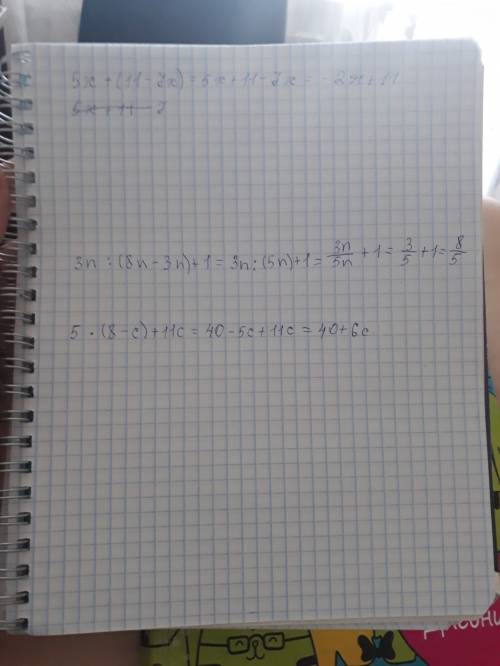 5x + (11 - 7x) = 5x + 11 - 7x = -2x + 11
5x + 11 - 7
3n : (8n - 3n) + 1 = 3n : (5n) + 1 = 3n/5n + 1 = 3/5 + 1 = 8/5
5 · (8 - c) + 11c = 40 - 5c + 11c = 40 + 6c